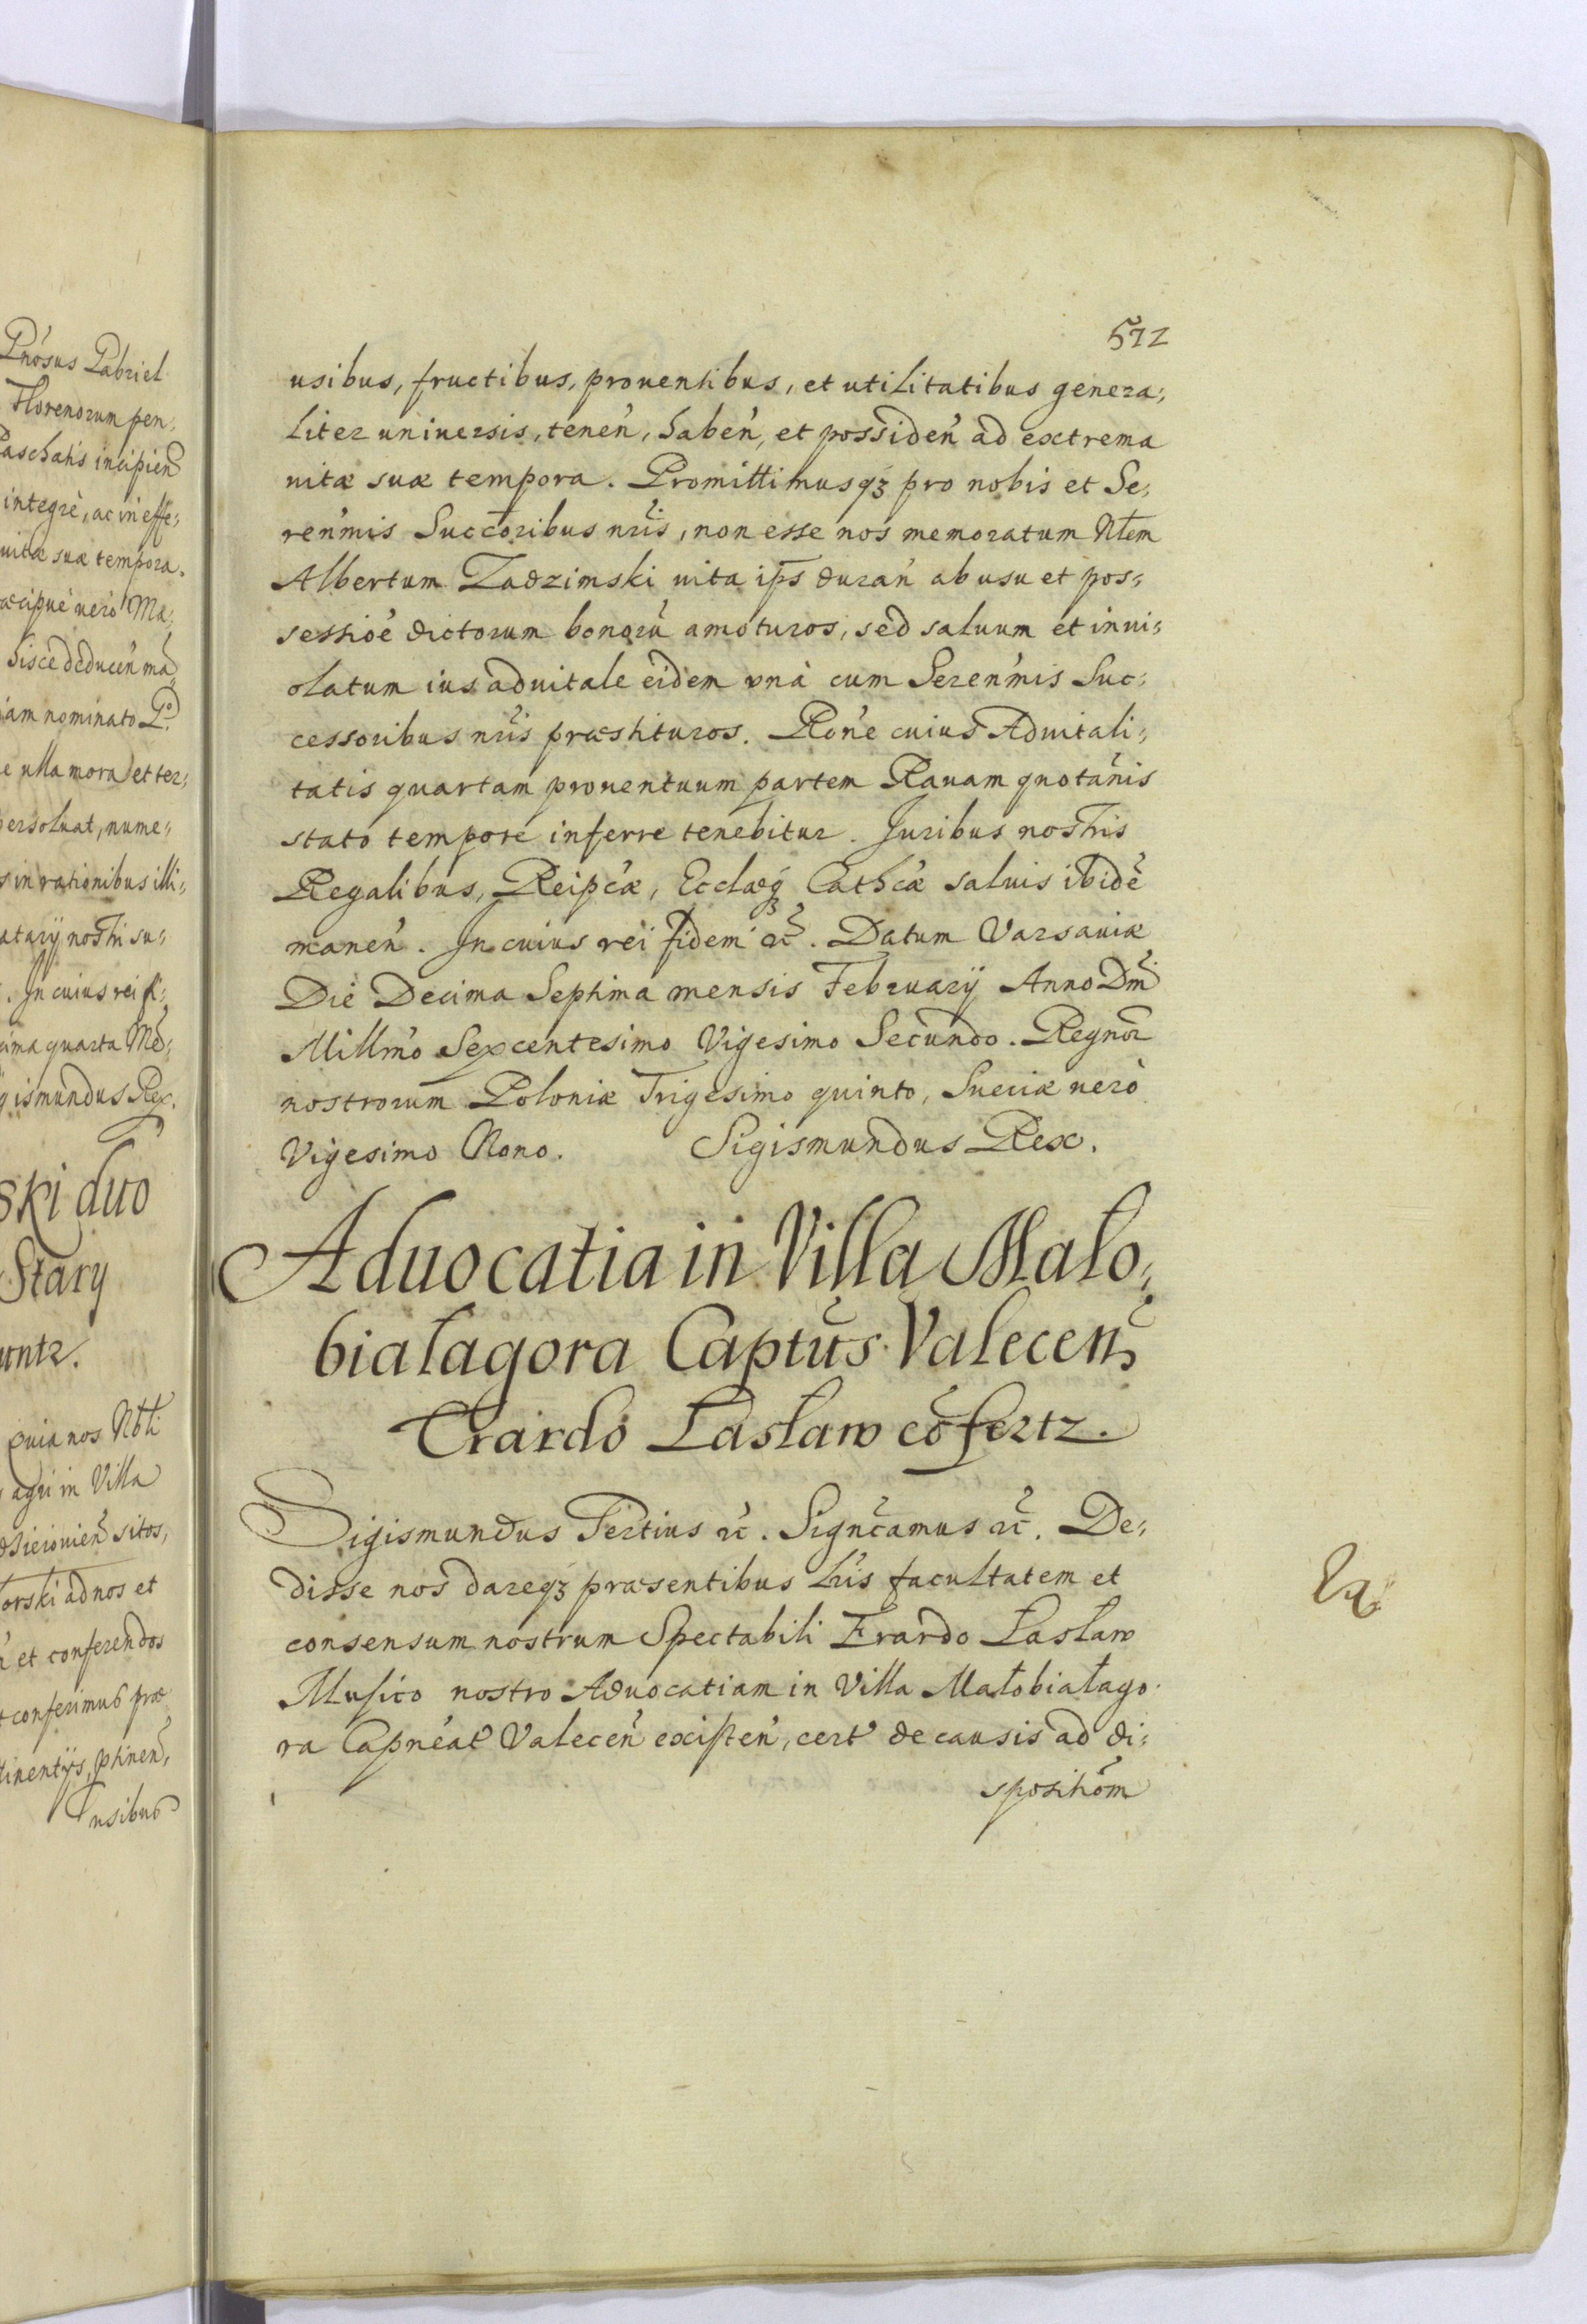 572
usibus, fructibus, prouentibus, et utilitatibus genera,,
liter uniuersis, tenen̄, haben̄, et possiden̄ ad extrema
uitæ suæ tempora. Promittimusqꝫ pro nobis et Se,,
ren̄mis Succōribus nr̄is, non esse nos memoratum Nl̄em
Albertum Zadzimski uita ip̄s duran̄ ab usu et pos,,
sessioē dictorum bonorū amoturos, sed saluum et inui,,
olatum ius aduitale eidem unà cum Seren̄mis Suc,,
cessoribus nr̄is præstituros. Rōne cuius Aduitali,,
tatis quartam prouentuum partem Rauam quotan̄is
stato tempore inferre tenebitur. Juribus nostris
Regalibus, Reipc̄æ, Ecclæqꝫ Cathc̄æ saluis ibidē
manen̄. In cuius rei fidem ꝛc̄. Datum Varsauiæ
Die Decima Septima mensis Februarÿ Anno Dm̄i
Millm̄o Sexcentesimo Vigesimo Secundo. Regnoꝝ
nostrorum Poloniæ Trigesimo quinto, Sueciæ uerò
Vigesimo Nono. Sigismundus Rex.
Aduocatia in Villa Mało,,
białagora Captūs Valecen̄
Erardo Łasław cōfertꝛ.
Sigismundus Tertius ꝛc̄. Signc̄amus ꝛc̄. De,,
disse nos dareqꝫ præsentibus lr̄is facultatem et
consensum nostrum Spectabili Erardo Łasław
Musico nostro Aduocatiam in Villa Małobiałago
ra Capnēat Valecen̄ existen̄, cert de causis ad di,,
spositiōm
Pnōsus Gabriel
Florenorum pen,,
Paschatis incipien̄d
integrè, ac in effe,,
uitæ suæ tempora.
uerò Ma,,
hisce deducen̄
iam nominato
ulla mora et ter,,
persoluat, nume,,
in rationibus illi,,
nostri su,,
. In cuius rei fi,,
quarta
Rex.
ski duo
Stary
untꝛ.
quia nos Nb̄li
agri in Villa
sitos,
orski ad nos et
et conferendos
conferimus præ
usibus